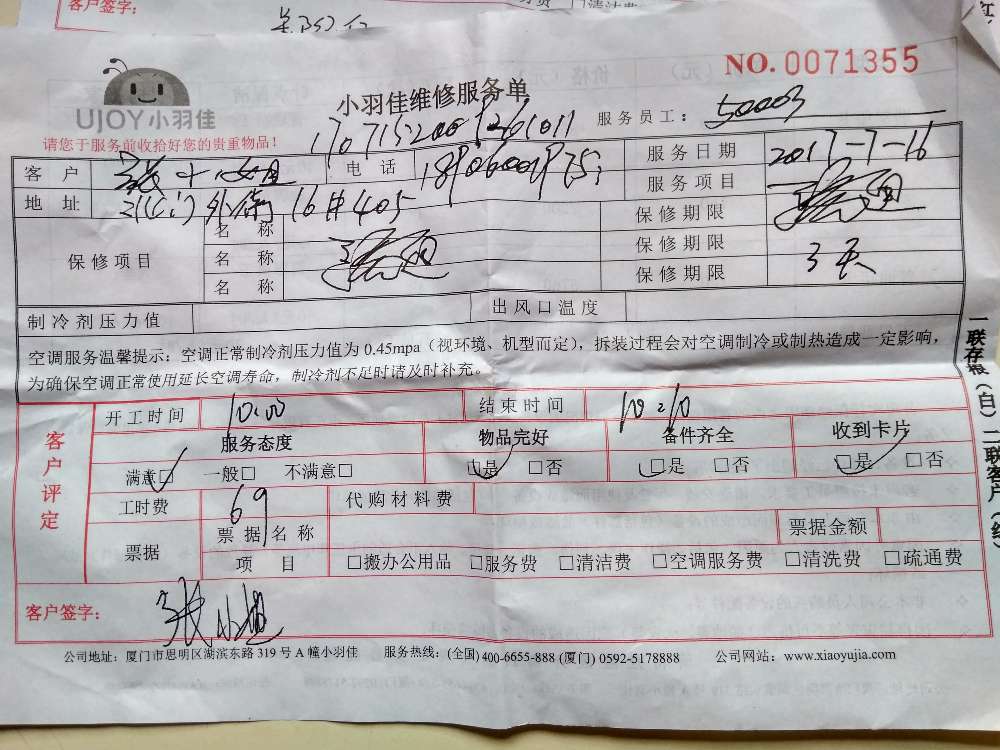 客户签字：
清洁费
NO. 0071355
UJOY小羽佳
小羽佳维修服务单
请您于服务前收拾好您的贵重物品！
服务员工： 50003
客 户 张小姐 电 话 服务日期 2017-7-16
地 址 外南16#405 服务项目
保修项目 名 称 保修期限
名 称 保修期限
名 称 保修期限 3天
制冷剂压力值 出风口温度
空调服务温馨提示：空调正常制冷剂压力值为 0.45mpa（视环境、机型而定），拆装过程会对空调制冷或制热造成一定影响，
为确保空调正常使用延长空调寿命，制冷剂不足时请及时补充。
客户评定
开工时间 10:00 结束时间 10:10
服务态度 物品完好 备件齐全 收到卡片
满意□ 一般□ 不满意□ □是 □否 □是 □否 □是 □否
工时费 69 代购材料费
票据 票据名称 票据金额
项 目 □搬办公用品 □服务费 □清洁费 □空调服务费 □清洗费 □疏通费
客户签字： 张小姐
公司地址：厦门市思明区湖滨东路 319 号 A 幢小羽佳 服务热线：(全国) 400-6655-888 (厦门) 0592-5178888 公司网站：www.xiaoyujia.com
一联存根（白）二联客户（红